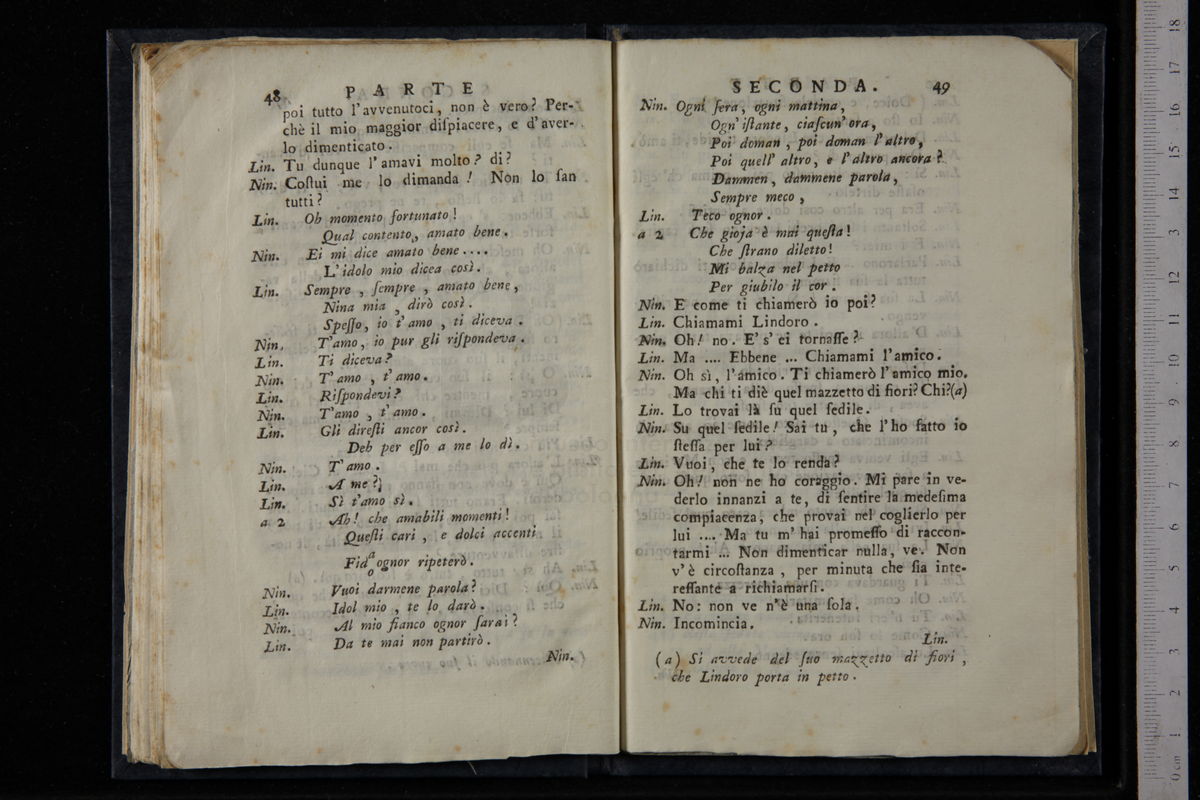 48 PARTE
poi tutto l'avvenutoci, non è vero? Per-
chè il mio maggior diſpiacere, e d'aver-
lo dimenticato.
Lin. Tu dunque l'amavi molto? di?
Nin. Coſtui me lo dimanda! Non lo ſan
tutti?
Lin. Oh momento fortunato!
Qual contento, amato bene.
Nin. Ei mi dice amato bene....
L'idolo mio dicea così.
Lin. Sempre, ſempre, amato bene,
Nina mia, dirò così.
Speſſo, io t'amo, ti diceva.
Nin. T'amo, io pur gli riſpondeva.
Lin. Ti diceva?
Nin. T'amo, t'amo.
Lin. Riſpondevi?
Nin. T'amo, t'amo.
Lin. Gli direſti ancor così.
Deh per eſſo a me lo dì.
Nin. T'amo.
Lin. A me?
Lin. Sì t'amo sì.
a 2 Ah! che amabili momenti!
Queſti cari, e dolci accenti
Fid a/o ognor ripeterò.
Nin. Vuoi darmene parola?
Lin. Idol mio, te lo darò.
Nin. Al mio fianco ognor ſarai?
Lin. Da te mai non partirò.
Nin.
SECONDA. 49
Nin. Ogni ſera, ogni mattina,
Ogn'iſtante, ciaſcun'ora,
Poi doman, poi doman l'altro,
Poi quell'altro, e l'altro ancora?
Dammen, dammene parola,
Sempre meco,
Lin. Teco ognor.
a 2 Che gioja è mai queſta!
Che ſtrano diletto!
Mi balza nel petto
Per giubilo il cor.
Nin. E come ti chiamerò io poi?
Lin. Chiamami Lindoro.
Nin. Oh! no. E's'ei tornaſſe?
Lin. Ma .... Ebbene ... Chiamami l'amico.
Nin. Oh sì, l'amico. Ti chiamerò l'amico mio.
Ma chi ti diè quel mazzetto di fiori? Chi?(a)
Lin. Lo trovai là ſu quel ſedile.
Nin. Su quel ſedile! Sai tu, che l'ho fatto io
ſteſſa per lui?
Lin. Vuoi, che te lo renda?
Nin. Oh! non ne ho coraggio. Mi pare in ve-
derlo innanzi a te, di ſentire la medeſima
compiacenza, che provai nel coglierlo per
lui .... Ma tu m'hai promeſſo di raccon-
tarmi ... Non dimenticar nulla, ve. Non
v'è circoſtanza, per minuta che ſia inte-
reſſante a richiamarſi.
Lin. No: non ve n'è una ſola.
Nin. Incomincia.
Lin.
(a) Si avvede del ſuo mazzetto di fiori,
che Lindoro porta in petto.
0 cm 1 2 3 4 5 6 7 8 9 10 11 12 13 14 15 16 17 18